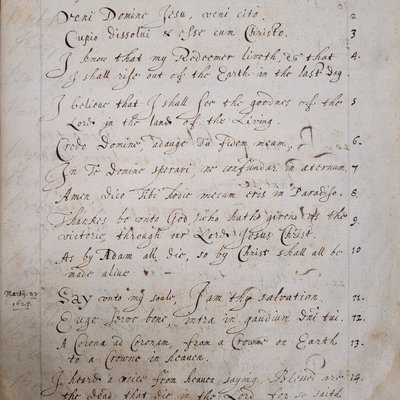 Veni Domine Jesu, veni cito. 2
Cupio dissolui & esse cum Christo. 3
I know that my Redeemer liveth, & that 4.
I shall rise out of the Earth in the last day.
I believe that I shall see the goodnes of the 5
Lord in the land of the Living.
Credo Domine, adauge Tu fidem meam, 6.
In Te Domine speravi, ne confundar in æternum. 7.
Amen dico Tibi hodie mecum eris in Paradiso. 8.
Thankes be unto God who hath given us the 9.
victorie, through our Lord Jesus Christ.
As by Adam all die, so by Christ shall all be 10
made alive
Martij 27
1625.
Say unto my soule, I am thy salvation 11.
Euge serve bone intra in gaudium Dni tui. 12.
A Corona ad Coronam, from a Crowne on Earth 13.
to a Crowne in heaven.
I heard a voice from heaven saying, Blessed are 14.
the dead that die in the Lord, for so saith